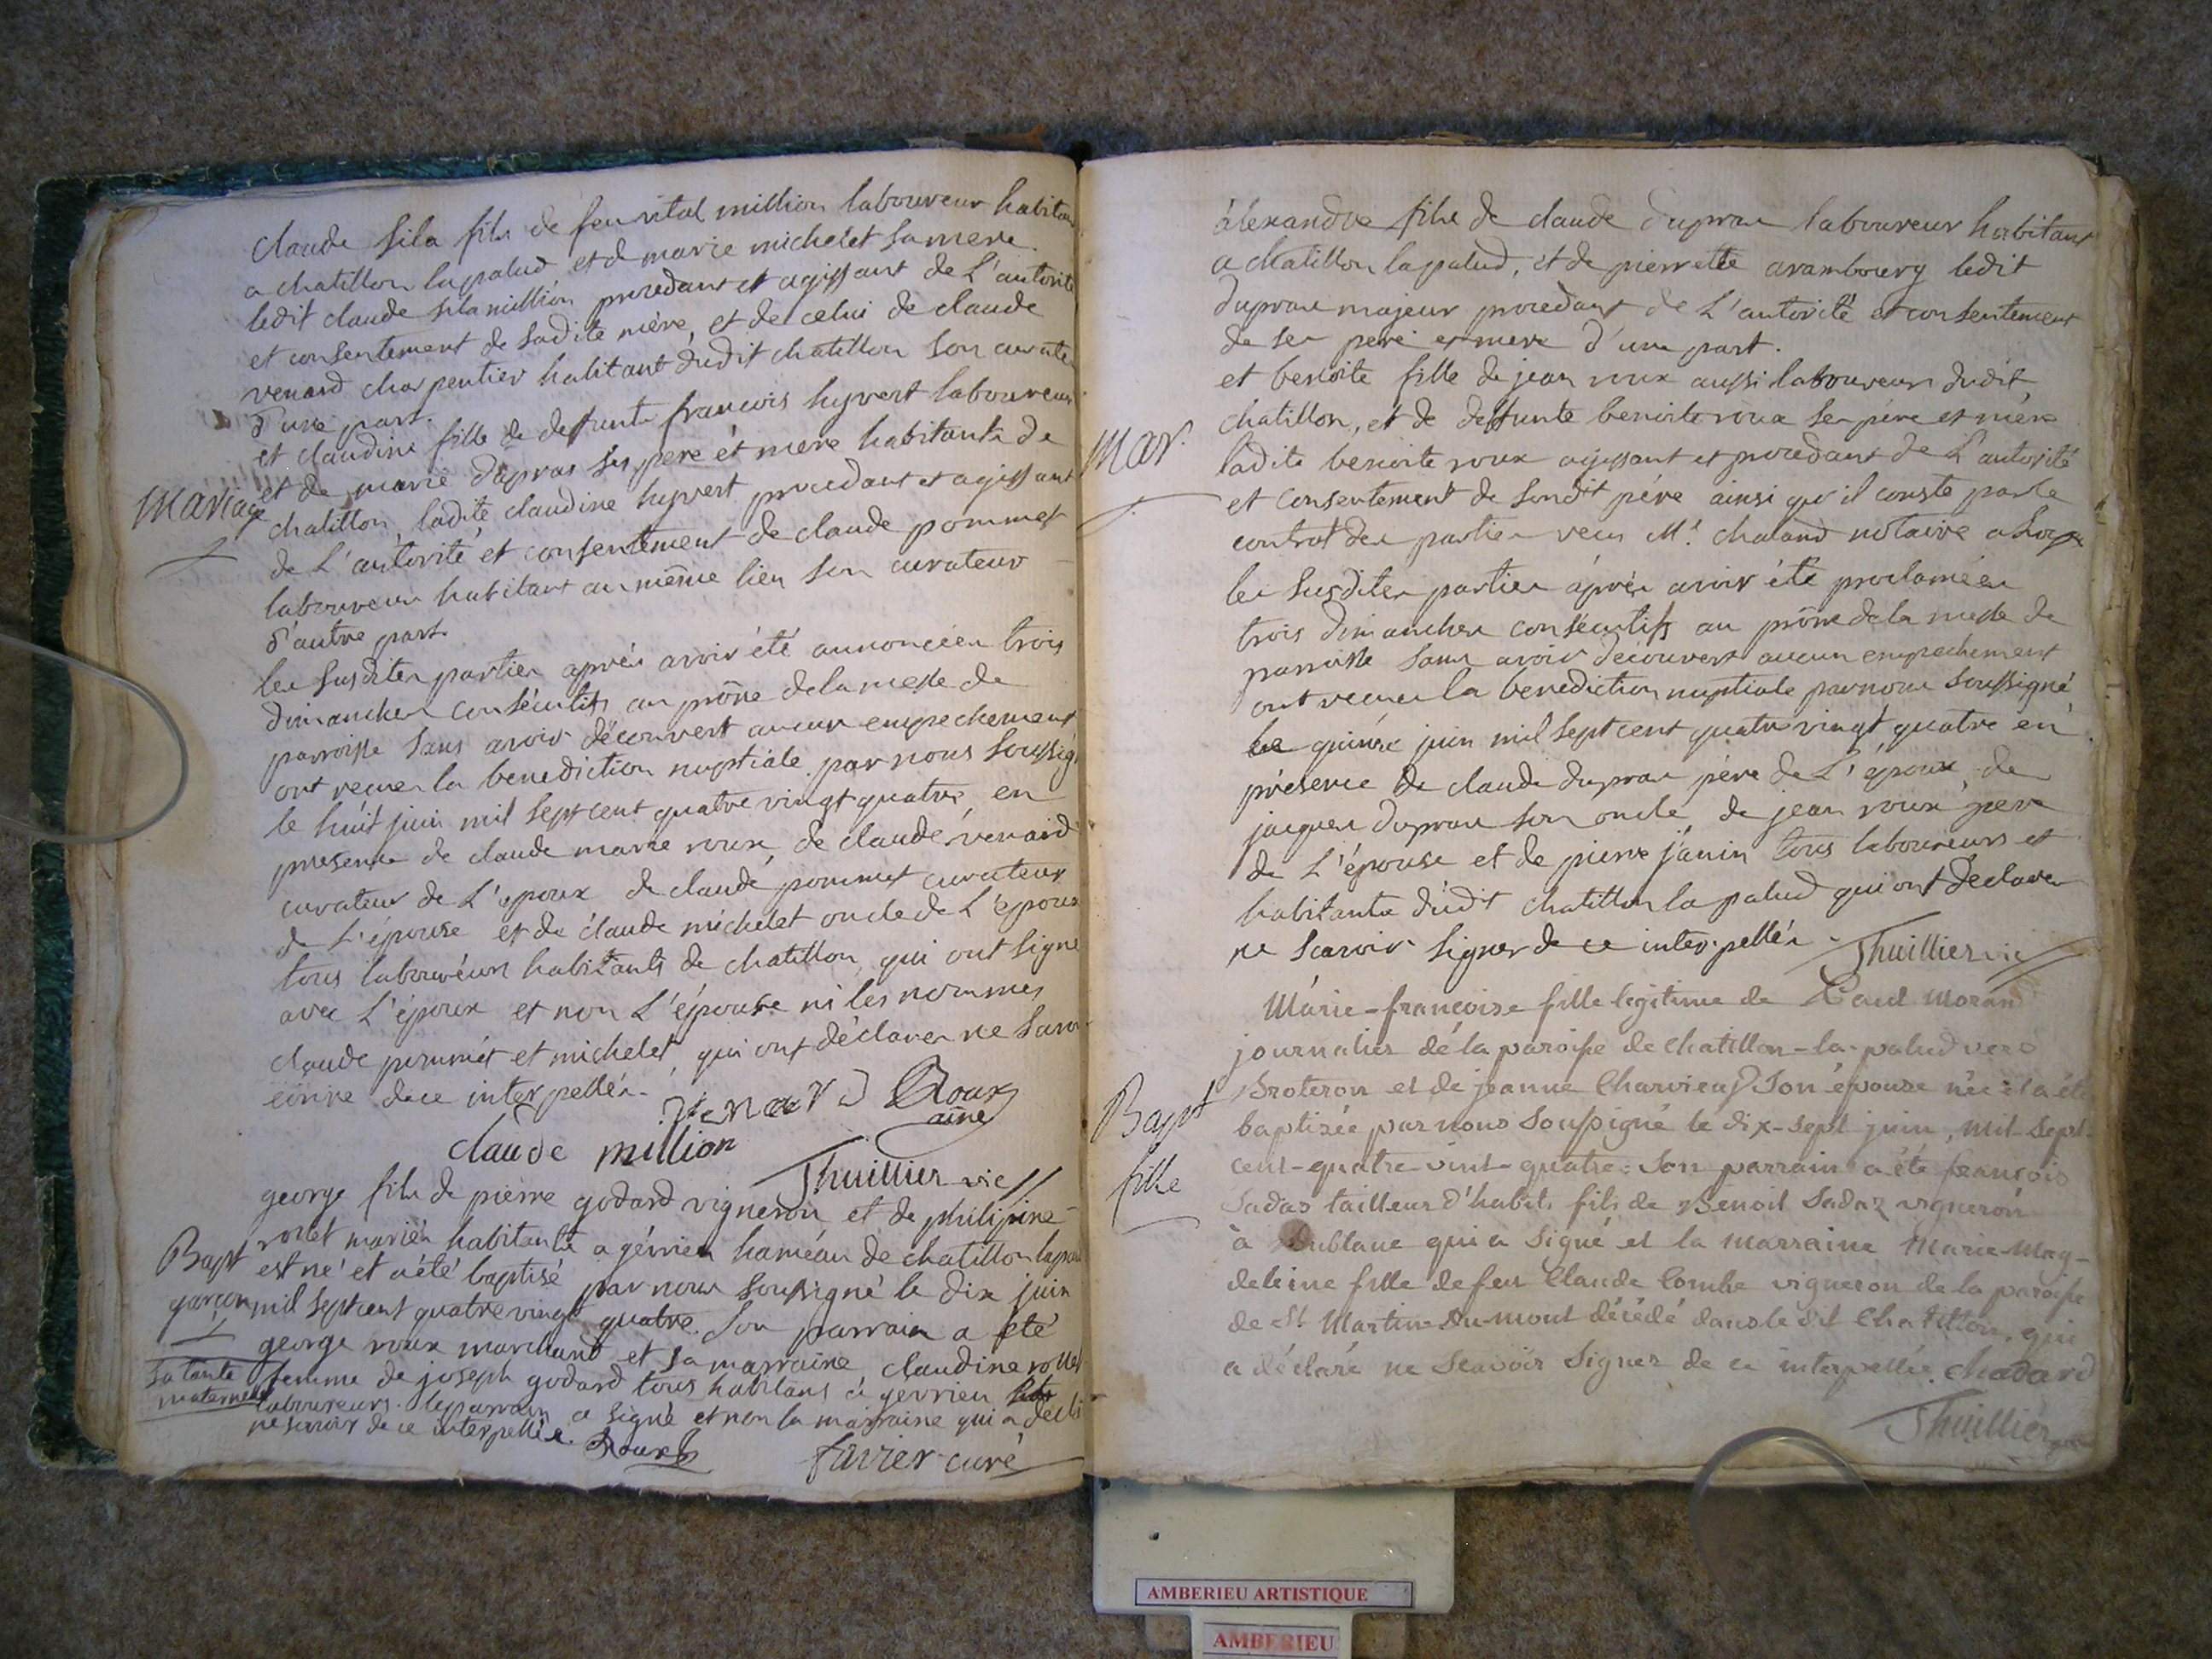 claude sila fils de feu vital million laboureur habitant
a chatillon lapalud et d marie michelet sa mere
ledit claude sila million procedant et agissant de L'autorité
et consentement de sadite mére, et de celui de claude
venard charpentier habitant dudit chatillon son curate
d'une part.
et claudine fille de deffunts francois hyvert laboureur
et de marie dupras ses pere et mere habitants de
Mariage
chatillon, ladite claudine hyvert procedant et agissant
de L'autorité et consentement de claude pommet
laboureur habitant au même lieu son curateur
d'autre part.
les susdites parties aprés avoir été annoncées trois
dimanches consécutifs au prône dela messe de
parroisse sans avoir découvert aucun empechement
ont recues la benediction nuptiale par nous soussig
le huit juin mil sept cent quatre vingt quatre, en
presence de claude marie roux, de claude venard
curateur de L'epoux de claude pommet curateur
de L'épouse et de claude michelet oncle de L'époux
tous laboureurs habitants de chatillon, qui ont signé
avec L'époux et non L'épouse ni les nommes
claude pommet et michelet, qui ont déclares ne savoir
ecrire dece interpellés.
Venard Roux
ainé
claude million
Thuillier vic
george fils de pierre godard vigneron et de philipine
rollet mariés habitants a gévrieu haméau de chatillon lapalu
Bapt
est né et a été baptisé par nous soussigné le dix juin
garçon
mil sept cent quatre vingt quatre. Son parrain a été
george roux marchand et sa marraine claudine rollet
sa tante
femme de joseph godard tous habitans à gevrieu
maternelle
laboureurs. le parrain a signé et non la marraine qui a décla
ne scavoir de ce interpellée. Roux
favier curé
alexandre fils de claude dupras laboureur habitant
a chatillon lapalud, et de pierrette arambourg ledit
dupras majeur procedant de L'autorité et consentement
de ses pere et mere d'une part.
et benoite fille de jean roux aussi laboureur dudit
chatillon, et de deffunte benoite roux ses pére et mére
Mar.
ladite benoite roux agissant et procedant de L'autorité
et consentement de sondit pére ainsi qu'il conste par le
contrat des parties recu Me. chaland notaire a
les susdites parties aprés avoir été proclamées
trois dimanches consécutifs au prône dela messe de
parroisse sans avoir découvert aucun empechement
ont recues la benediction nuptiale par nous soussigné
le quinze juin mil sept cent quatre vingt quatre en
présence de claude dupras pére de L'époux, de
jacques dupras son oncle de jean roux pere
de L'épouse et de pierre janin tous laboureurs et
habitants dudit chatillon la palud qui ont declares
ne scavoir signer de ce interpellés. Thuillier vic
Marie-françoise fille legitime de Moran
journalier de la paroisse de chatillon-la-palud vers
Broteron et de jeanne Charvieu Son épouse née et a été
Bapt
baptisée par nous soussigné le dix-sept juin, mil sept-
cent-quatre-vint-quatre. Son parrain a été francois
fille
Sadas tailleur d'habits fils de Benoit Sadaz vigneron
à Dublane qui a signé et la marraine Marie-Mag-
deleine fille de feu Claude Combe vigneron de la paroisse
de St Martin-du-mont décédé dans le dit Chatillon, qui
a déclaré ne Scavoir signer de ce interpellée. chadard
Thuillier
AMBERIEU ARTISTIQUE
AMBERIEU